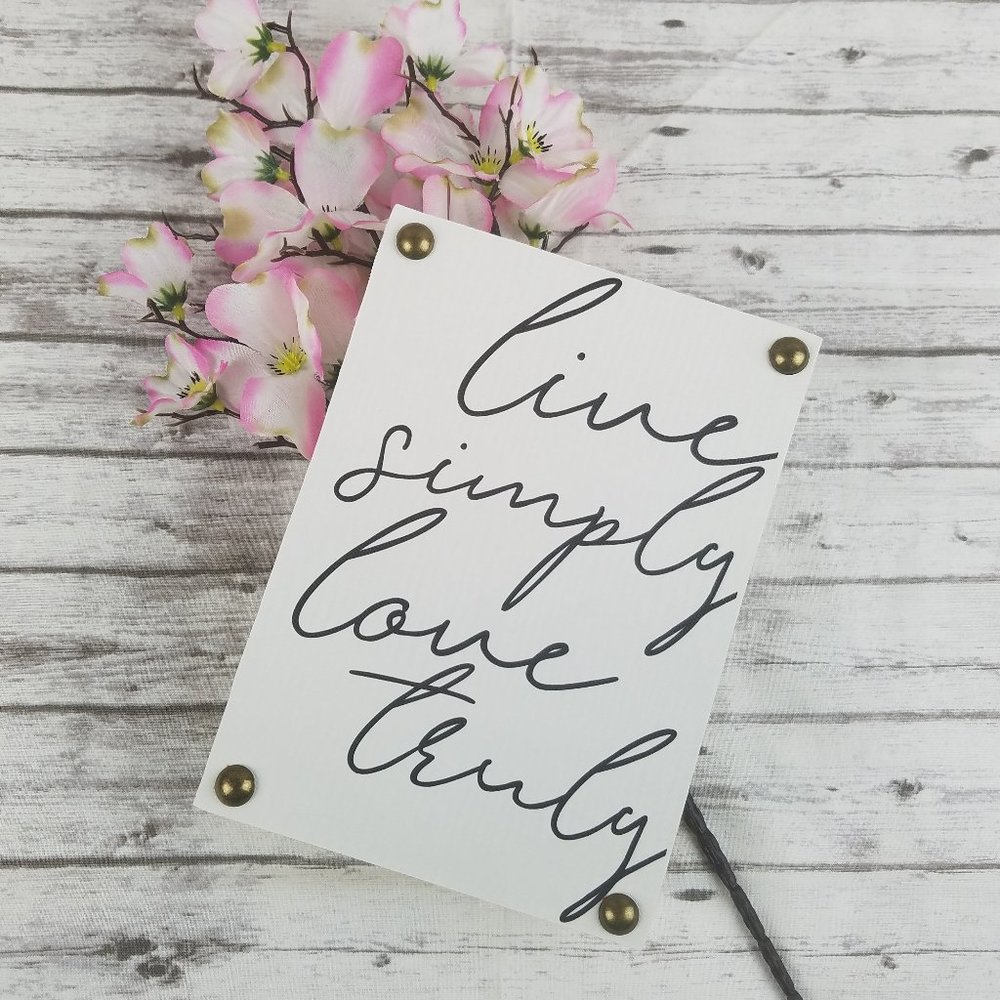 live
simply
love
truly